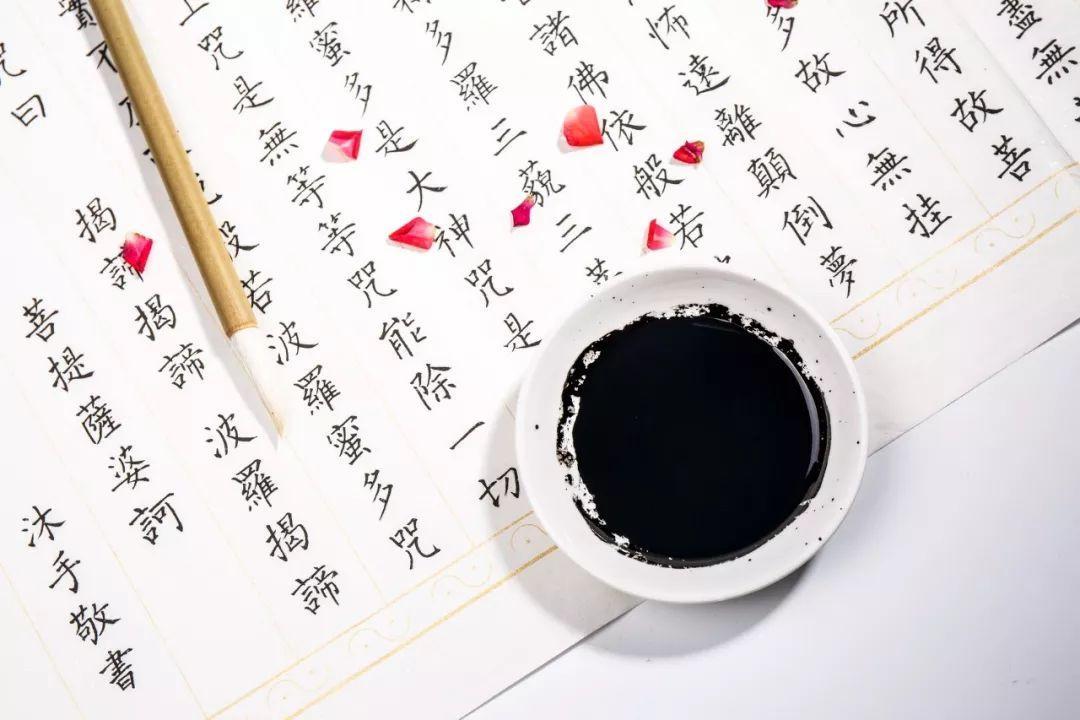 盡無
所得故菩
多故心無挂
怖遠離顛倒夢
諸佛依般若
多羅三藐三菩
羅蜜多是大神咒是
上咒是無等等咒能除一切
實不說般若波羅蜜多咒
咒曰 揭諦揭諦 波羅揭諦
菩提薩婆訶
沐手敬書